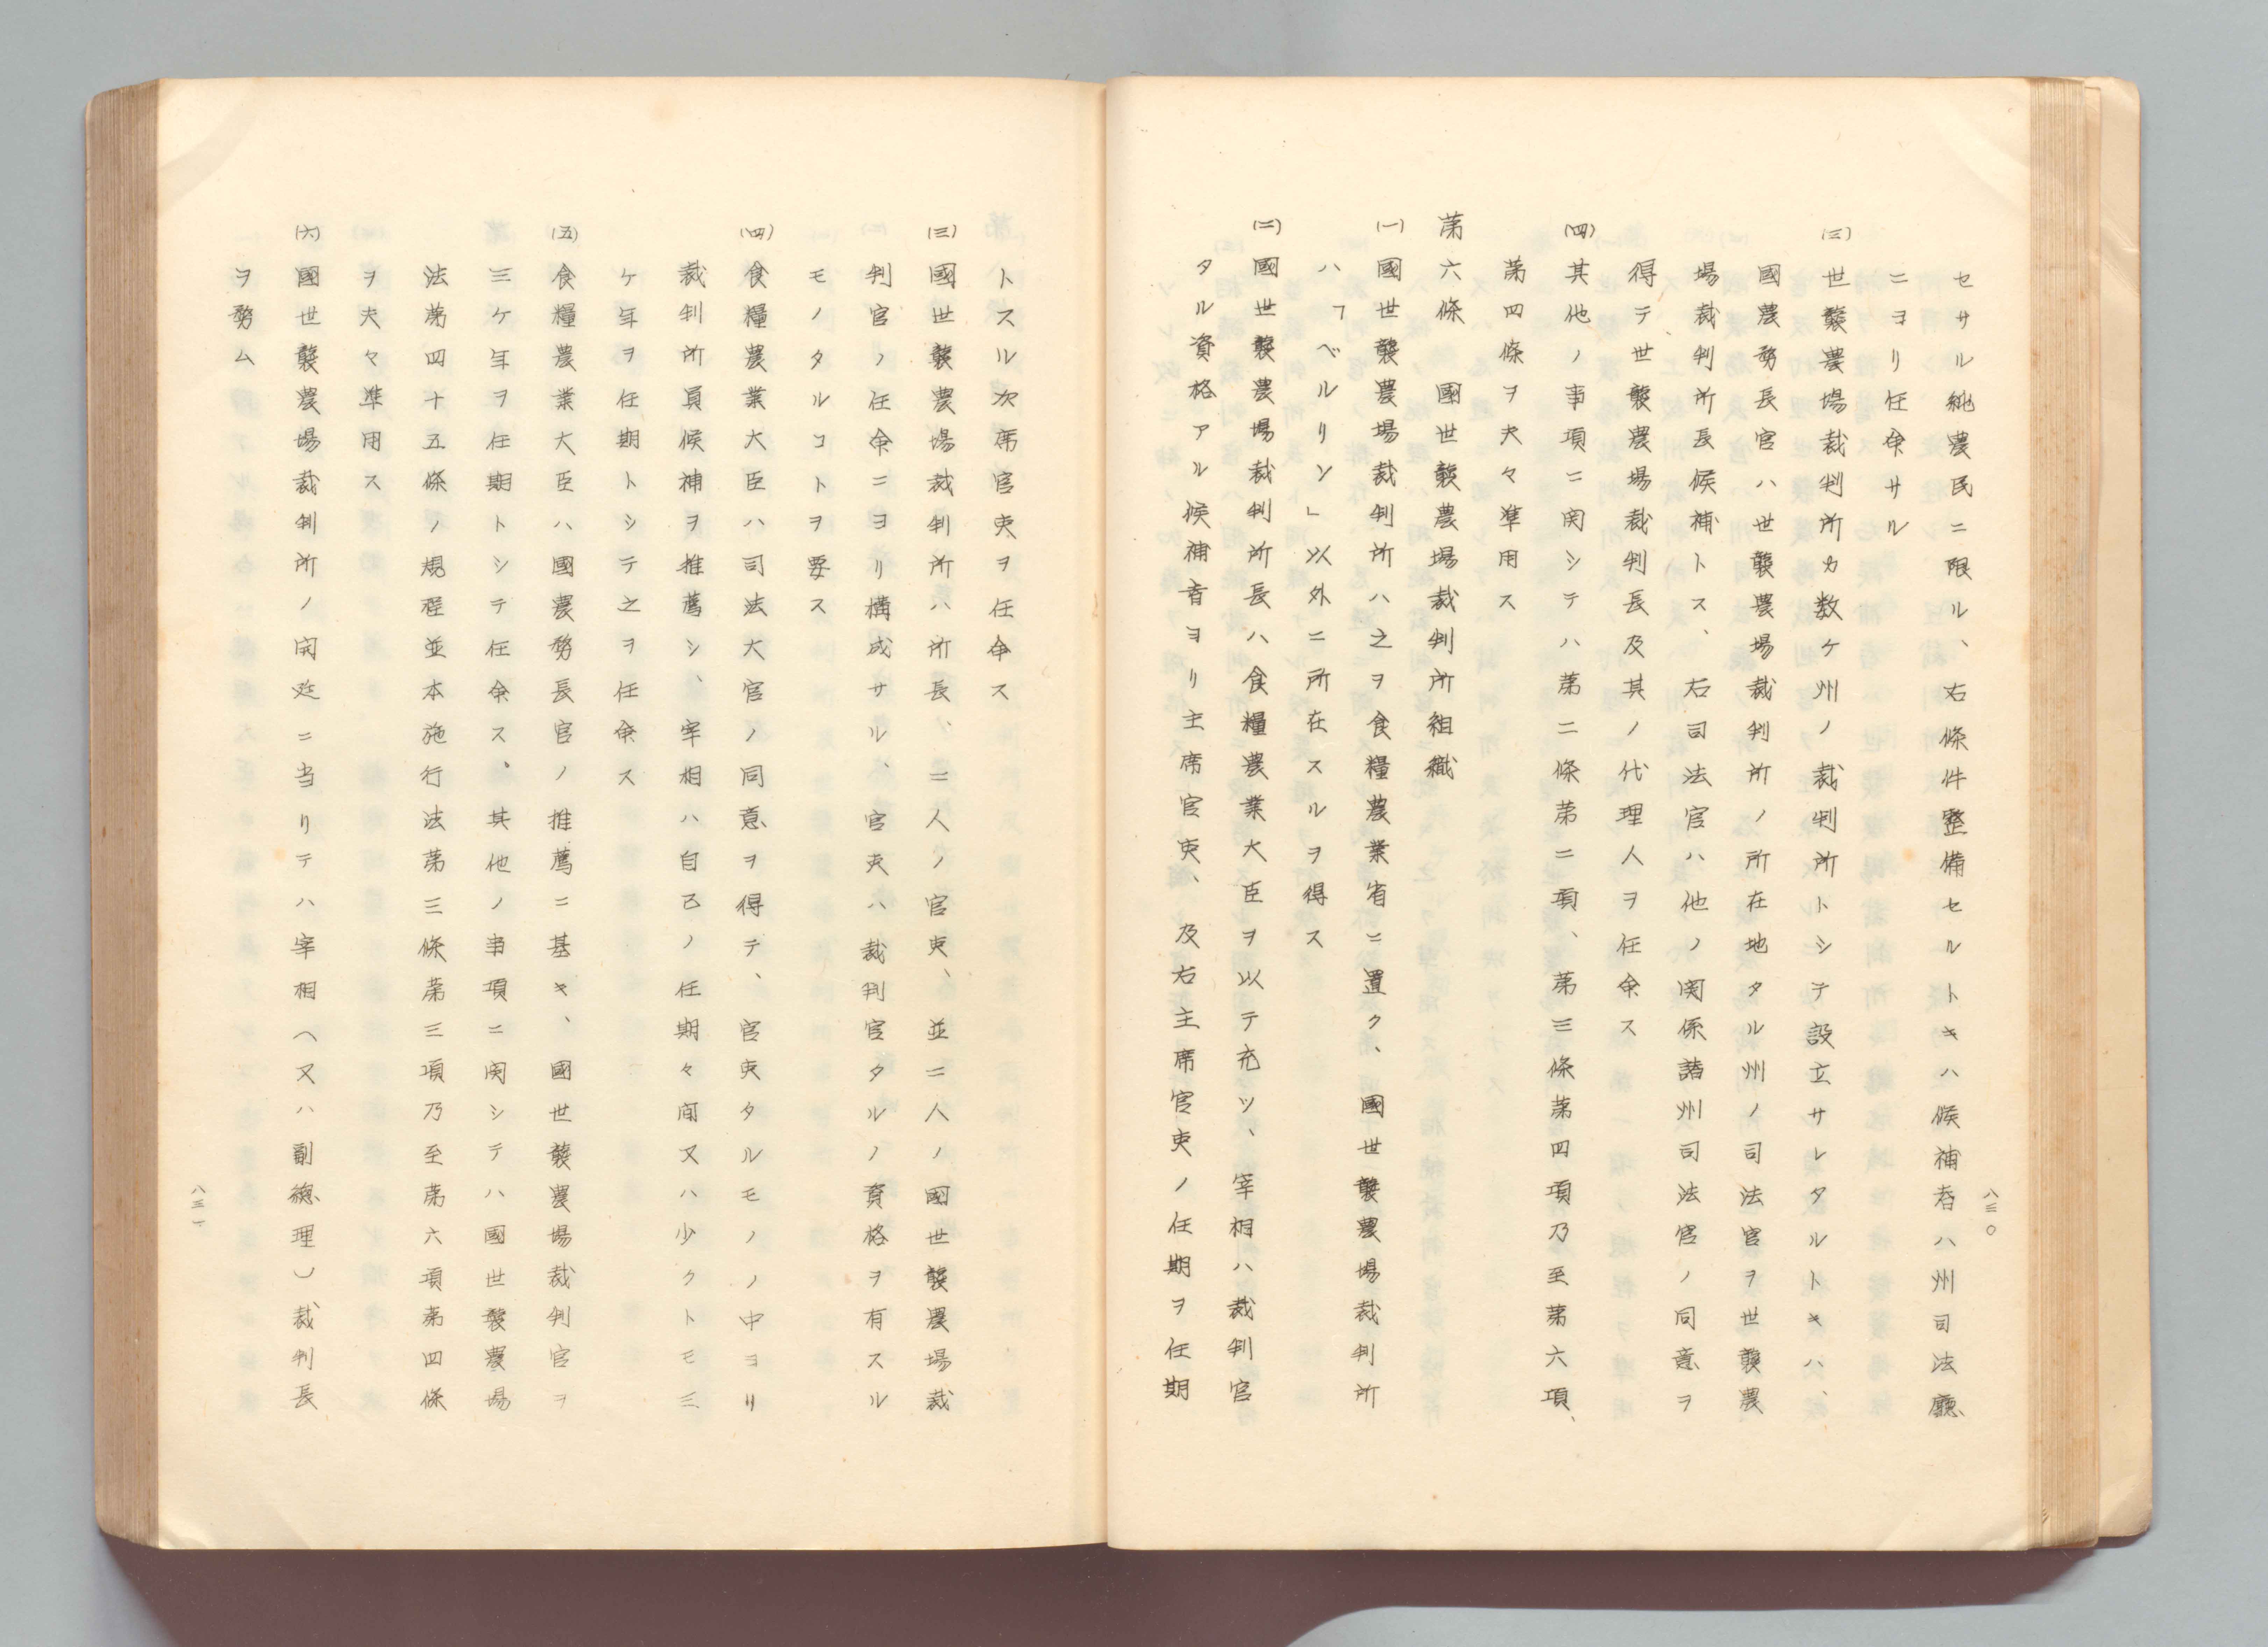 セサル純農民ニ限ル、右條件整備セルトキハ候補者ハ州司法廳
ニヨリ任命サル
(三)世襲農場裁判所カ数ケ州ノ裁判所トシテ設立サレタルトキハ、
國農務長官ハ世襲農場裁判所ノ所在地タル州ノ司法官ヲ世襲農
場裁判所長候補トス、右司法官ハ他ノ関係諸州司法官ノ同意ヲ
得テ、世襲農場裁判長及其ノ代理人ヲ任命ス
(四)其他ノ事項ニ関シテハ第二條第二項、第三條第四項乃至第六項、
第四條ヲ夫々準用ス
第六條 國世襲農場裁判所組織
(一)國世襲農場裁判所ハ之ヲ食糧農業省ニ置ク、國世襲農場裁判所
ハ「ベルリン」以外ニ所在スルヲ得ス
(二)國世襲農場裁判所長ハ食糧農業大臣ヲ以テ充ツ、宰相ハ裁判官
タル資格アル候補者ヨリ主席官吏、及右主席官吏ノ任期ヲ任期
八三〇
トスル次席官吏ヲ任命ス
(三)國世襲農場裁判所ハ所長、二人ノ官吏、並ニ二人ノ國世襲農場裁
判官ノ任命ニヨリ構成サル、官吏ハ裁判官タルノ資格ヲ有スル
モノタルコトヲ要ス
(四)食糧農業大臣ハ司法大官ノ同意ヲ得テ、官吏タルモノノ中ヨリ
裁判所員候補ヲ推薦シ、宰相ハ自己ノ任期々間又ハ少クトモ三
ケ年ヲ任期トシテ之ヲ任命ス
(五)食糧農業大臣ハ國農務長官ノ推薦ニ基キ、國世襲農場裁判官ヲ
三ケ年ヲ任期トシテ任命ス、其他ノ事項ニ関シテハ國世襲農場
法第四十五條ノ規程並本施行法第三條第三項乃至第六項第四條
ヲ夫々準用ス
(六)國世襲農場裁判所ノ開廷ニ当リテハ宰相(又ハ副總理)裁判長
ヲ務ム
八三一